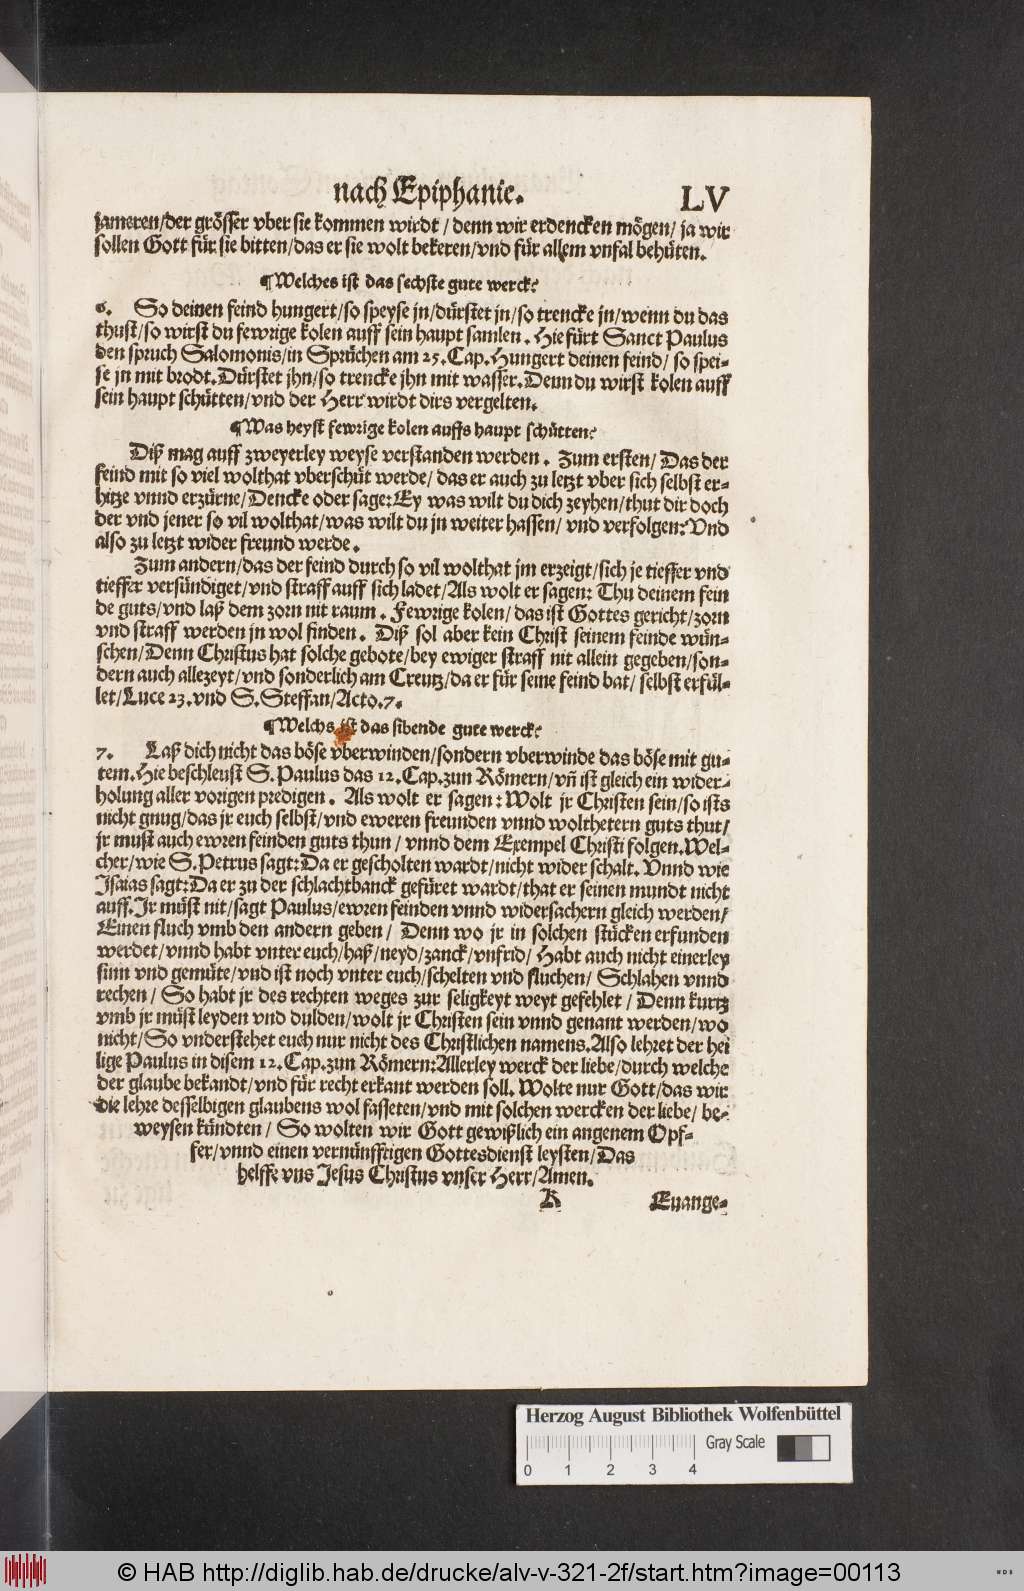 nach Epiphanie. LV
jameren/der grösser vber sie kommen wirdt / denn wir erdencken mögen/ ja wir
sollen Gott für sie bitten/das er sie wolt bekeren/vnd für allem vnfal behüten.
¶Welches ist das sechste gute werck?
6. So deinen feind hungert/so speyse jn/dürstet jn/so trencke jn/wenn du das
thust/so wirst du fewrige kolen auff sein haupt samlen. Hie fürt Sanct Paulus
den spruch Salomonis/in Sprüchen am 25.Cap.Hungert deinen feind/ so spei-
se jn mit brodt.Dürstet jhn/so trencke jhn mit wasser.Denn du wirst kolen auff
sein haupt schütten/vnd der Herr wirdt dirs vergelten.
¶Was heyst fewrige kolen auffs haupt schütten?
Diß mag auff zweyerley weyse verstanden werden. Zum ersten/ Das der
feind mit so viel wolthat vberschüt werde/das er auch zu letzt vber sich selbst er-
hitze vnnd erzürne/Dencke oder sage:Ey was wilt du dich zeyhen/thut dir doch
der vnd jener so vil wolthat/was wilt du jn weiter hassen/ vnd verfolgen:Vnd
also zu letzt wider freund werde.
Zum andern/das der feind durch so vil wolthat jm erzeigt/sich je tieffer vnd
tieffer versündiget/vnd straff auff sich ladet/Als wolt er sagen: Thu deinem fein
de guts/vnd laß dem zorn nit raum. Fewrige kolen/das ist Gottes gericht/zorn
vnd straff werden jn wol finden. Diß sol aber kein Christ seinem feinde wün-
schen/Denn Christus hat solche gebote/bey ewiger straff nit allein gegeben/son-
dern auch allezeyt/vnd sonderlich am Creutz/da er für seine feind bat/ selbst erfül-
let/Luce 23.vnd S.Steffan/Acto.7.
¶Welchs ist das sibende gute werck?
7. Laß dich nicht das böse vberwinden/sondern vberwinde das böse mit gu-
tem.Hie beschleust S.Paulus das 12.Cap.zun Römern/vñ ist gleich ein wider-
holung aller vorigen predigen. Als wolt er sagen:Wolt jr Christen sein/so ists
nicht gnug/das jr euch selbst/vnd eweren freunden vnnd wolthetern guts thut/
jr must auch ewren feinden guts thun / vnnd dem Exempel Christi folgen.Wel-
cher/wie S.Petrus sagt:Da er gescholten wardt/nicht wider schalt. Vnnd wie
Isaias sagt:Da er zu der schlachtbanck gefüret wardt/that er seinen mundt nicht
auff.Ir müst nit/sagt Paulus/ewren feinden vnnd widersachern gleich werden/
Einen fluch vmb den andern geben/ Denn wo jr in solchen stücken erfunden
werdet/vnnd habt vnter euch/haß/neyd/zanck/vnfrid/ Habt auch nicht einerley
sinn vnd gemüte/vnd ist noch vnter euch/schelten vnd fluchen/ Schlahen vnnd
rechen/ So habt jr des rechten weges zur seligkeyt weyt gefehlet/ Denn kurtz
vmb jr müst leyden vnd dulden/wolt jr Christen sein vnnd genant werden/wo
nicht/So vnderstehet euch nur nicht des Christlichen namens.Also lehret der hei
lige Paulus in disem 12.Cap.zun Römern:Allerley werck der liebe/durch welche
der glaube bekandt/vnd für recht erkant werden soll. Wolte nur Gott/das wir
die lehre desselbigen glaubens wol fasseten/vnd mit solchen wercken der liebe/ be-
weysen kündten/ So wolten wir Gott gewißlich ein angenem Opf-
fer/vnnd einen vernünfftigen Gottesdienst leysten/Das
helffe vns Jesus Christus vnser Herr/Amen.
K Euange-
Herzog August Bibliothek Wolfenbüttel
Gray Scale
0 1 2 3 4
© HAB http://diglib.hab.de/drucke/alv-v-321-2f/start.htm?image=00113